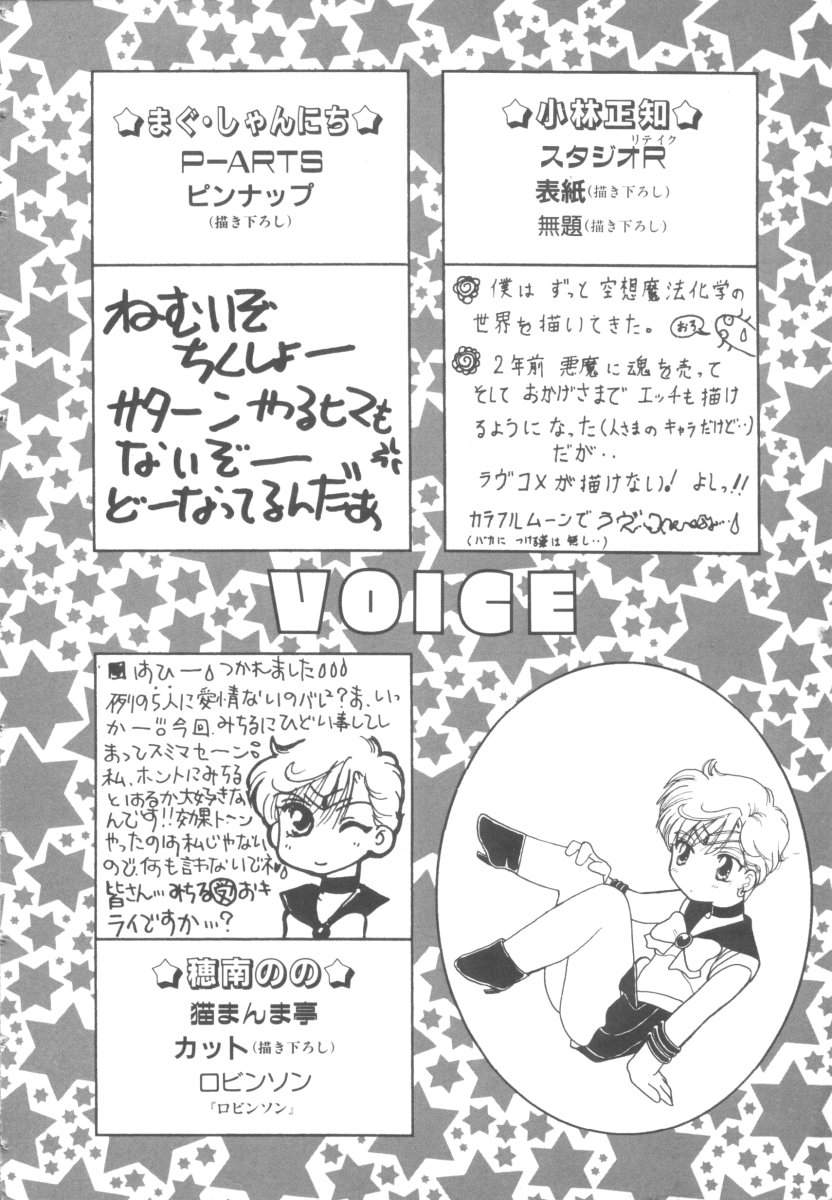 ☆小林正知☆
スタジオR
リテイク
表紙(描き下ろし)
無題(描き下ろし)
僕は ずっと 空想魔法化学の
世界を描いてきた。
おろ〜
2年前 悪魔に魂を売って
そして おかげさまで エッチも描け
るように なった(人さまの キャラだけど‥)
だが‥
ラヴコメが描けない! よしっ!!
カラフルムーンで ラヴ
(バカに つける薬は 無し‥)
☆まぐ・しゃんにち☆
P-ARTS
ピンナップ
(描き下ろし)
ねむいぞ
ちくしょー
サターン やるヒマも
ないぞー
どーなってるんだぁ
VOICE
はひー つかれました
例の5人に愛情ないのバレバレ?ま、いっ
かー!!今回、みちるにひどい事してし
まってスミマセーン
私、ホントにみちる
とはるか大好きな
んです!!効果トーン
やったのは私じゃない
ので、何も言わないでネ
皆さん…みちる受おキ
ライですか…?
☆穂南のの☆
猫まんま亭
カット(描き下ろし)
ロビンソン
『ロビンソン』